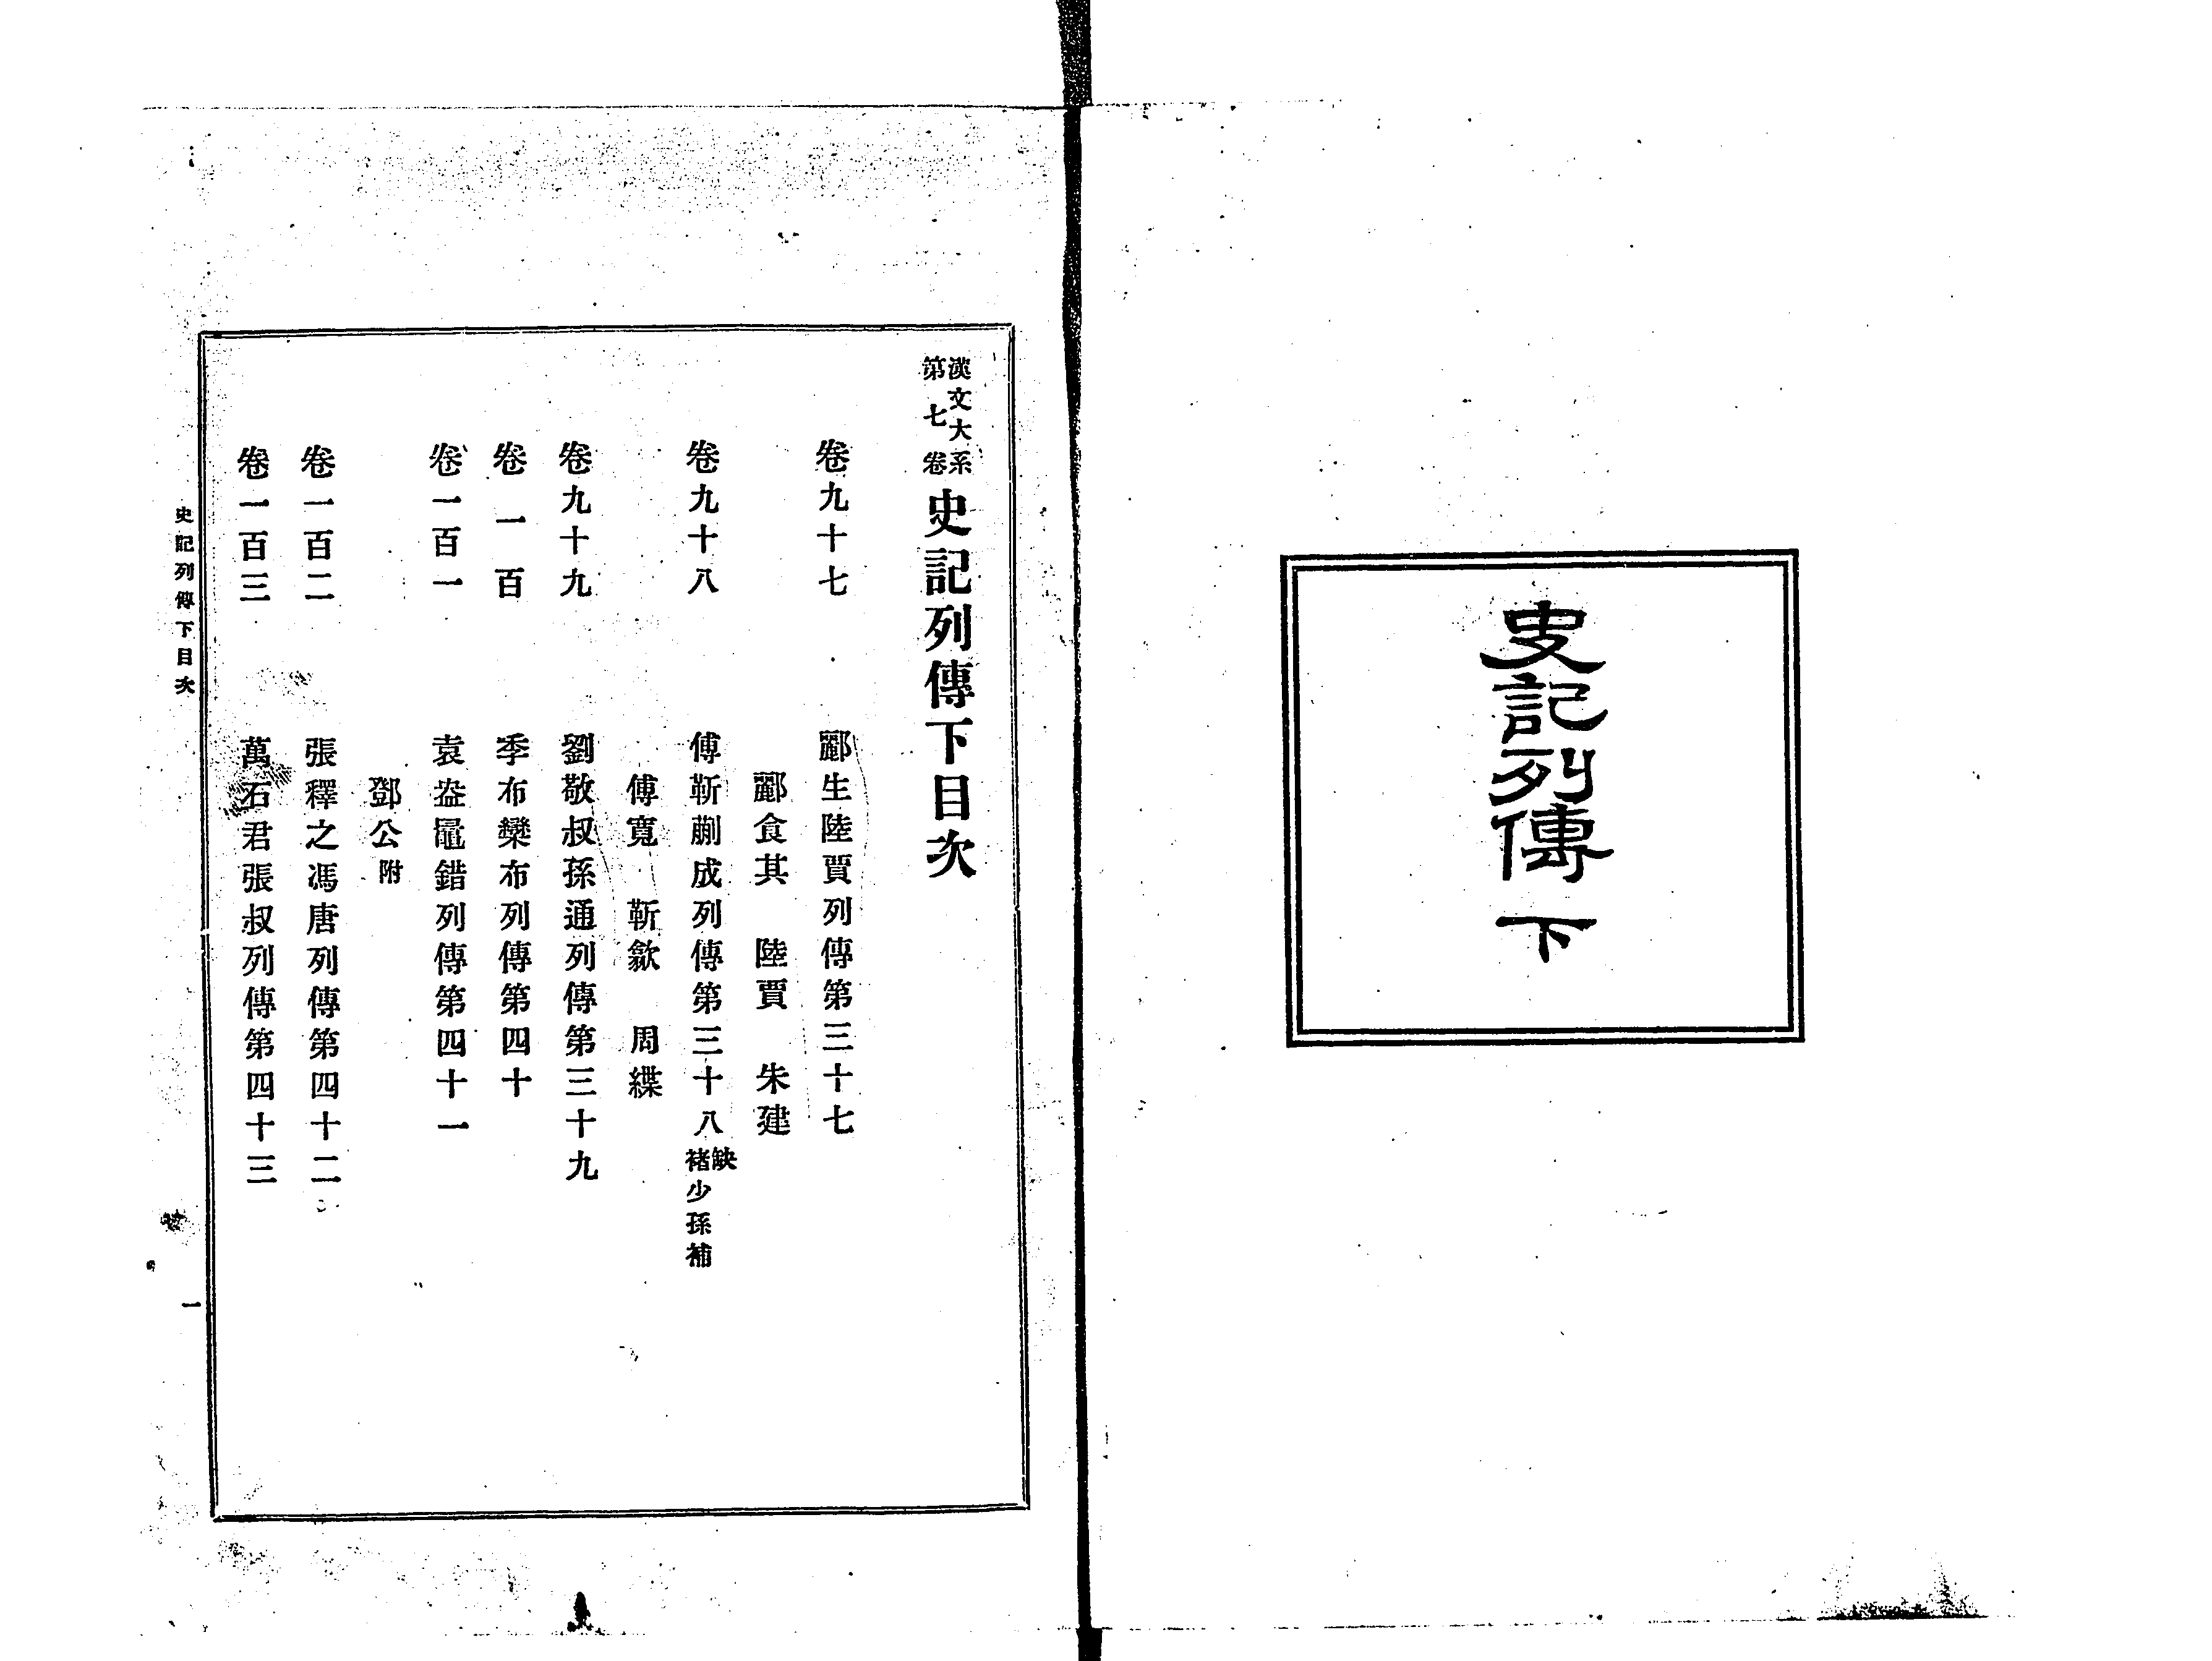 史記列傳 下
漢文大系
第七卷
史記列傳下目次
卷九十七 酈生陸賈列傳第三十七
酈食其 陸賈 朱建
卷九十八 傅靳蒯成列傳第三十八 缺
褚少孫補
傅寬 靳歙 周緤
卷九十九 劉敬叔孫通列傳第三十九
卷一百 季布欒布列傳第四十
卷一百一 袁盎鼂錯列傳第四十一
鄧公附
卷一百二 張釋之馮唐列傳第四十二
卷一百三 萬石君張叔列傳第四十三
史記列傳下目次
一